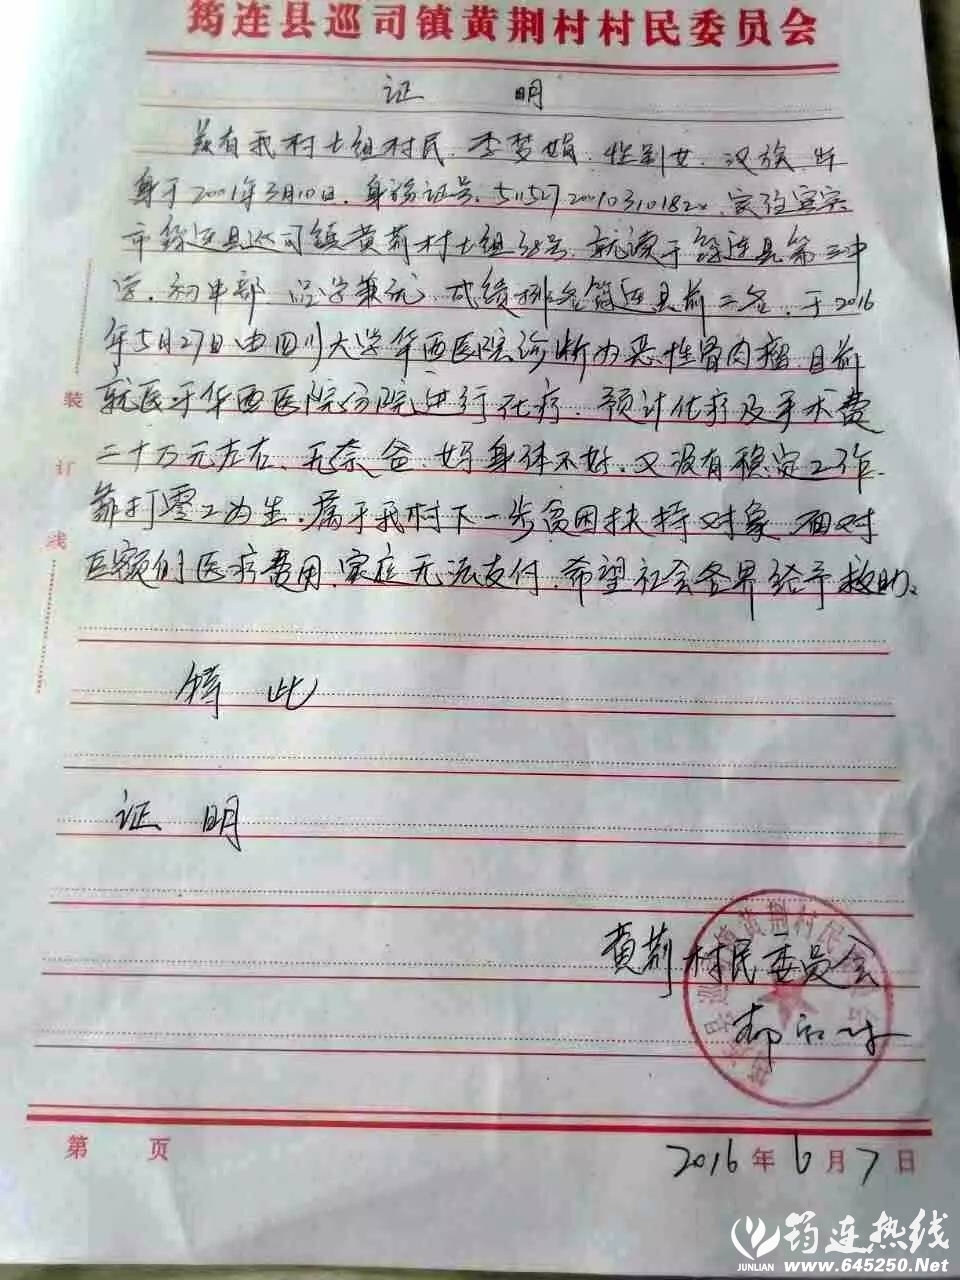 筠连县巡司镇黄荆村村民委员会
证 明
兹有我村七组村民,李梦娟,性别女,汉族,出
身于2001年3月10日,身份证号,家住宜宾
市筠连县巡司镇黄荆村七组,就读于筠连县第三中
学,初中部,品学兼优,成绩排名筠连县前二名,于2016
年5月27日由四川大学华西医院诊断为恶性骨肉瘤,目前
就医于华西医院分院进行化疗,预计化疗及手术费
二十万元左右、无奈爸、妈身体不好,又没有稳定工作,
靠打零工为生,属于我村下一步贫困扶持对象,面对
巨额的医疗费用,家庭无法支付,希望社会各界给予救助。
特 此
证 明
黄荆村民委员会
第 页
2016年6月7日
装
订
线
筠连热线
JUNLIAN www.645250.Net